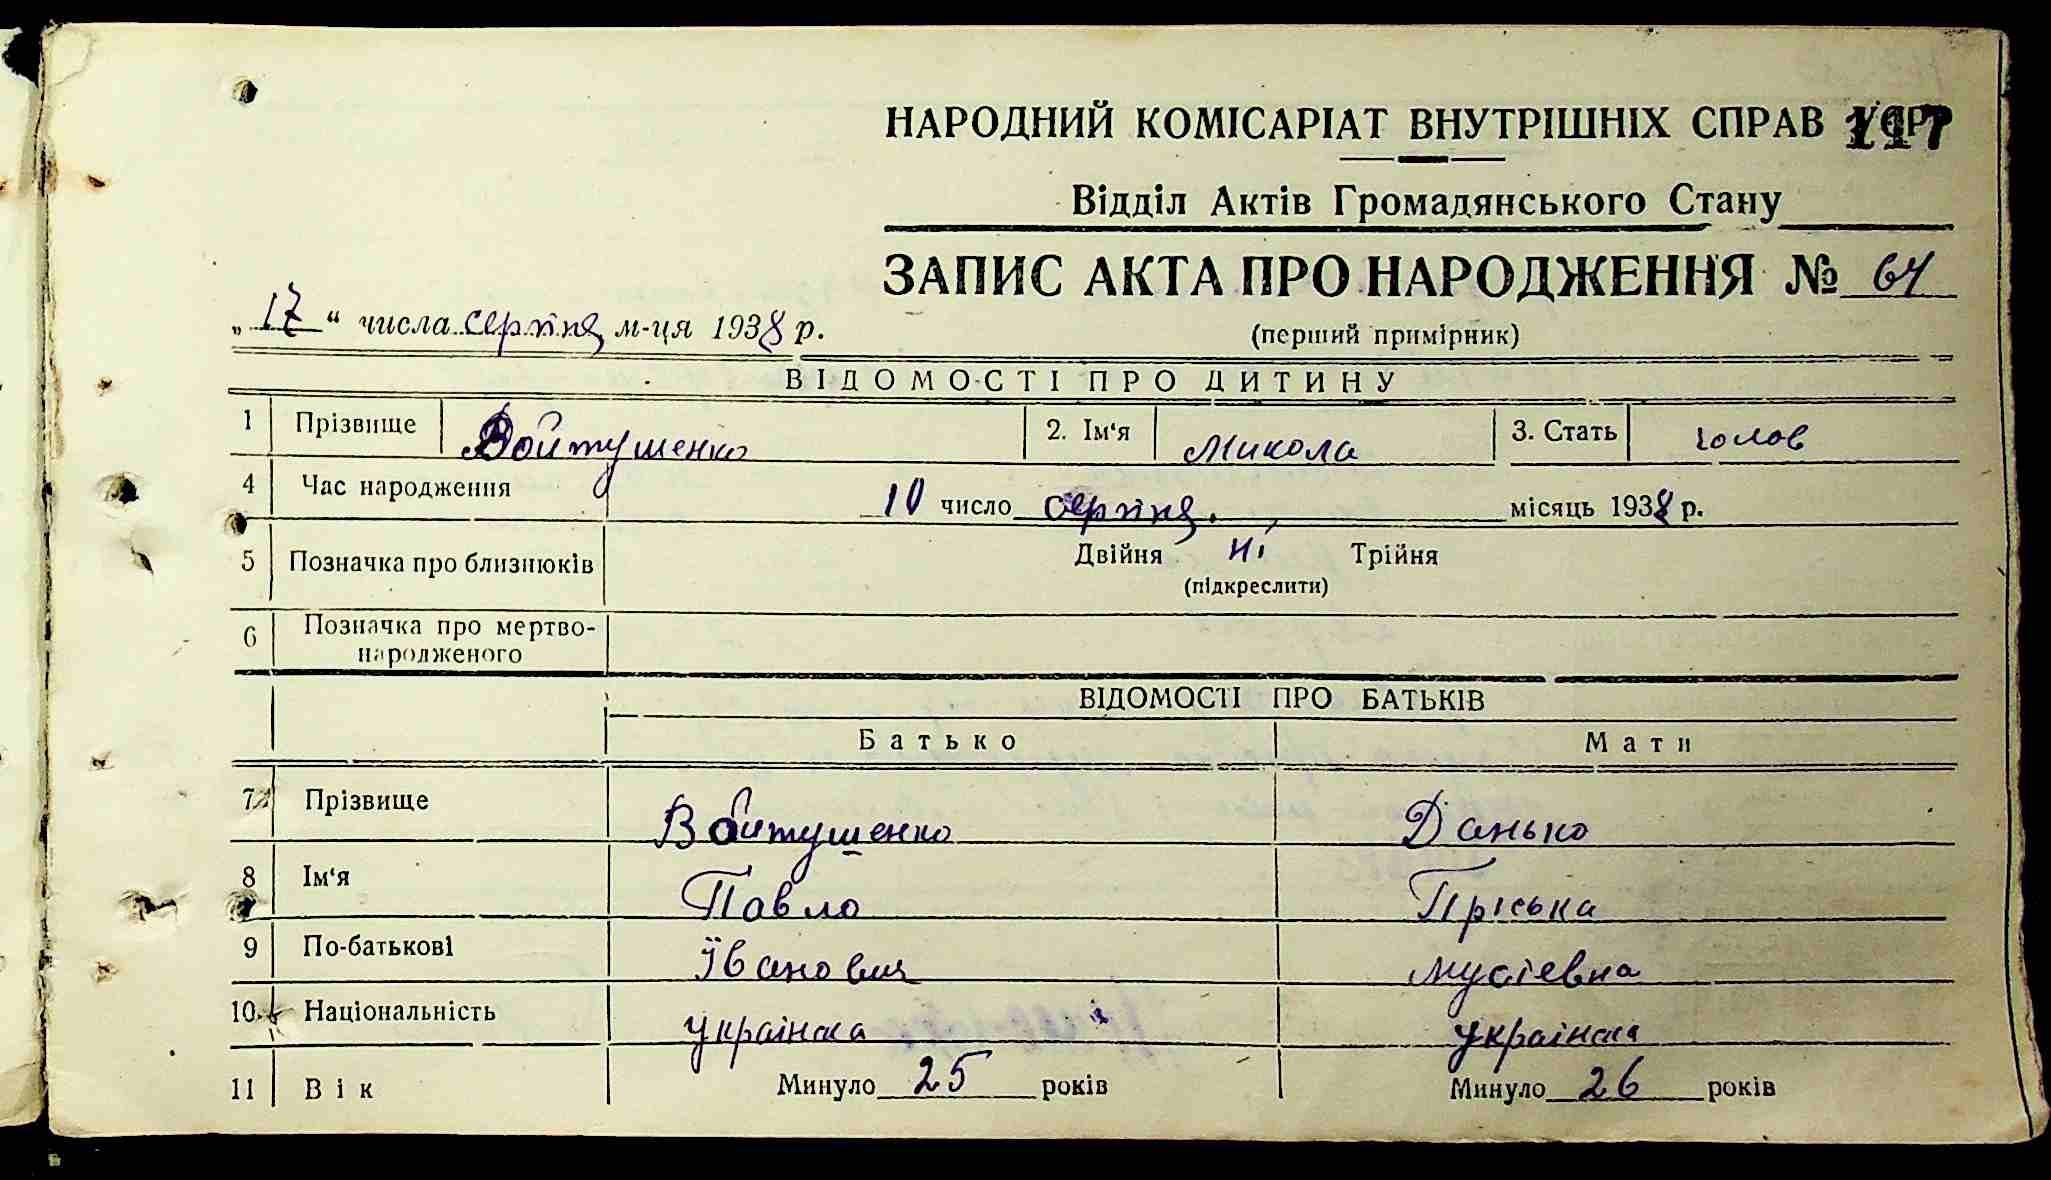 НАРОДНИЙ КОМІСАРІАТ ВНУТРІШНІХ СПРАВ УСРР 117
Відділ Актів Громадянського Стану
ЗАПИС АКТА ПРО НАРОДЖЕННЯ № 64
„17“ числа серпня м-ця 1938 р.
(перший примірник)
ВІДОМОСТІ ПРО ДИТИНУ
1 Прізвище Войтушенко 2. Ім‘я Микола 3. Стать чолов
4 Час народження 10 число серпня. місяць 1938 р.
5 Позначка про близнюків Двійня ні Трійня
(підкреслити)
6 Позначка про мертво-
народженого
ВІДОМОСТІ ПРО БАТЬКІВ
Батько Мати
7 Прізвище Войтушенко Данько
8 Ім‘я Павло Пріська
9 По-батькові Їванович мусіевна
10 Національність українка українка
11 Вік Минуло 25 років Минуло 26 років